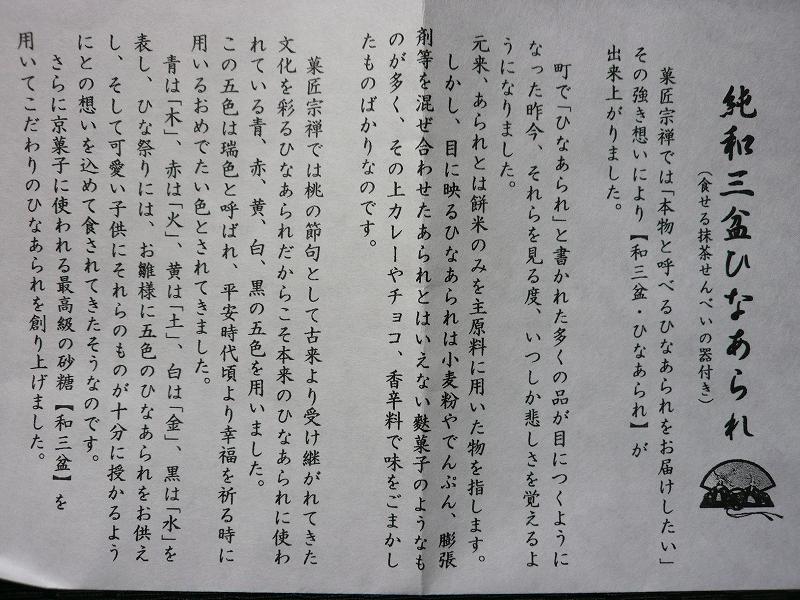 純和三盆ひなあられ
（食せる抹茶せんべいの器付き）
菓匠宗禅では「本物と呼べるひなあられをお届けしたい」
その強き想いにより【和三盆・ひなあられ】が
出来上がりました。
町で「ひなあられ」と書かれた多くの品が目につくように
なった昨今、それらを見る度、いつしか悲しさを覚えるよ
うになりました。
元来、あられとは餅米のみを主原料に用いた物を指します。
しかし、目に映るひなあられは小麦粉やでんぷん、膨張
剤等を混ぜ合わせたあられとはいえない麩菓子のようなも
のが多く、その上カレーやチョコ、香辛料で味をごまかし
たものばかりなのです。
菓匠宗禅では桃の節句として古来より受け継がれてきた
文化を彩るひなあられだからこそ本来のひなあられに使わ
れている青、赤、黄、白、黒の五色を用いました。
この五色は瑞色と呼ばれ、平安時代頃より幸福を祈る時に
用いるおめでたい色とされてきました。
青は「木」、赤は「火」、黄は「土」、白は「金」、黒は「水」を
表し、ひな祭りには、お雛様に五色のひなあられをお供え
し、そして可愛い子供にそれらのものが十分に授かるよう
にとの想いを込めて食されてきたそうなのです。
さらに京菓子に使われる最高級の砂糖【和三盆】を
用いてこだわりのひなあられを創り上げました。